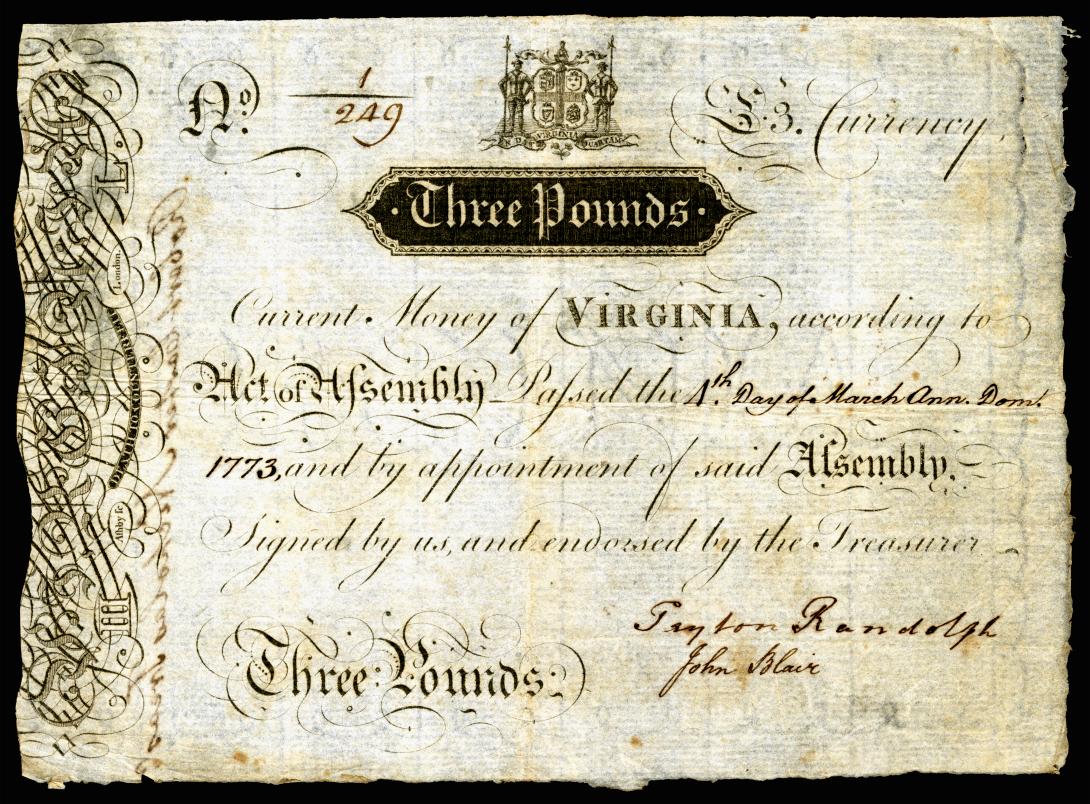 No. 1
249
£3. Currency,
EN DAT VIRGINIA QUARTAM
Three Pounds
Current Money of VIRGINIA, according to
Act of Assembly Paſsed the 4th. Day of March Ann. Dom.
1773, and by appointment of said Aſsembly,
Signed by us, and endorsed by the Treasurer
Three Pounds:
Peyton Randolph
John Blair
London.
DEATH TO COUNTERFEIT
Ashby Sc